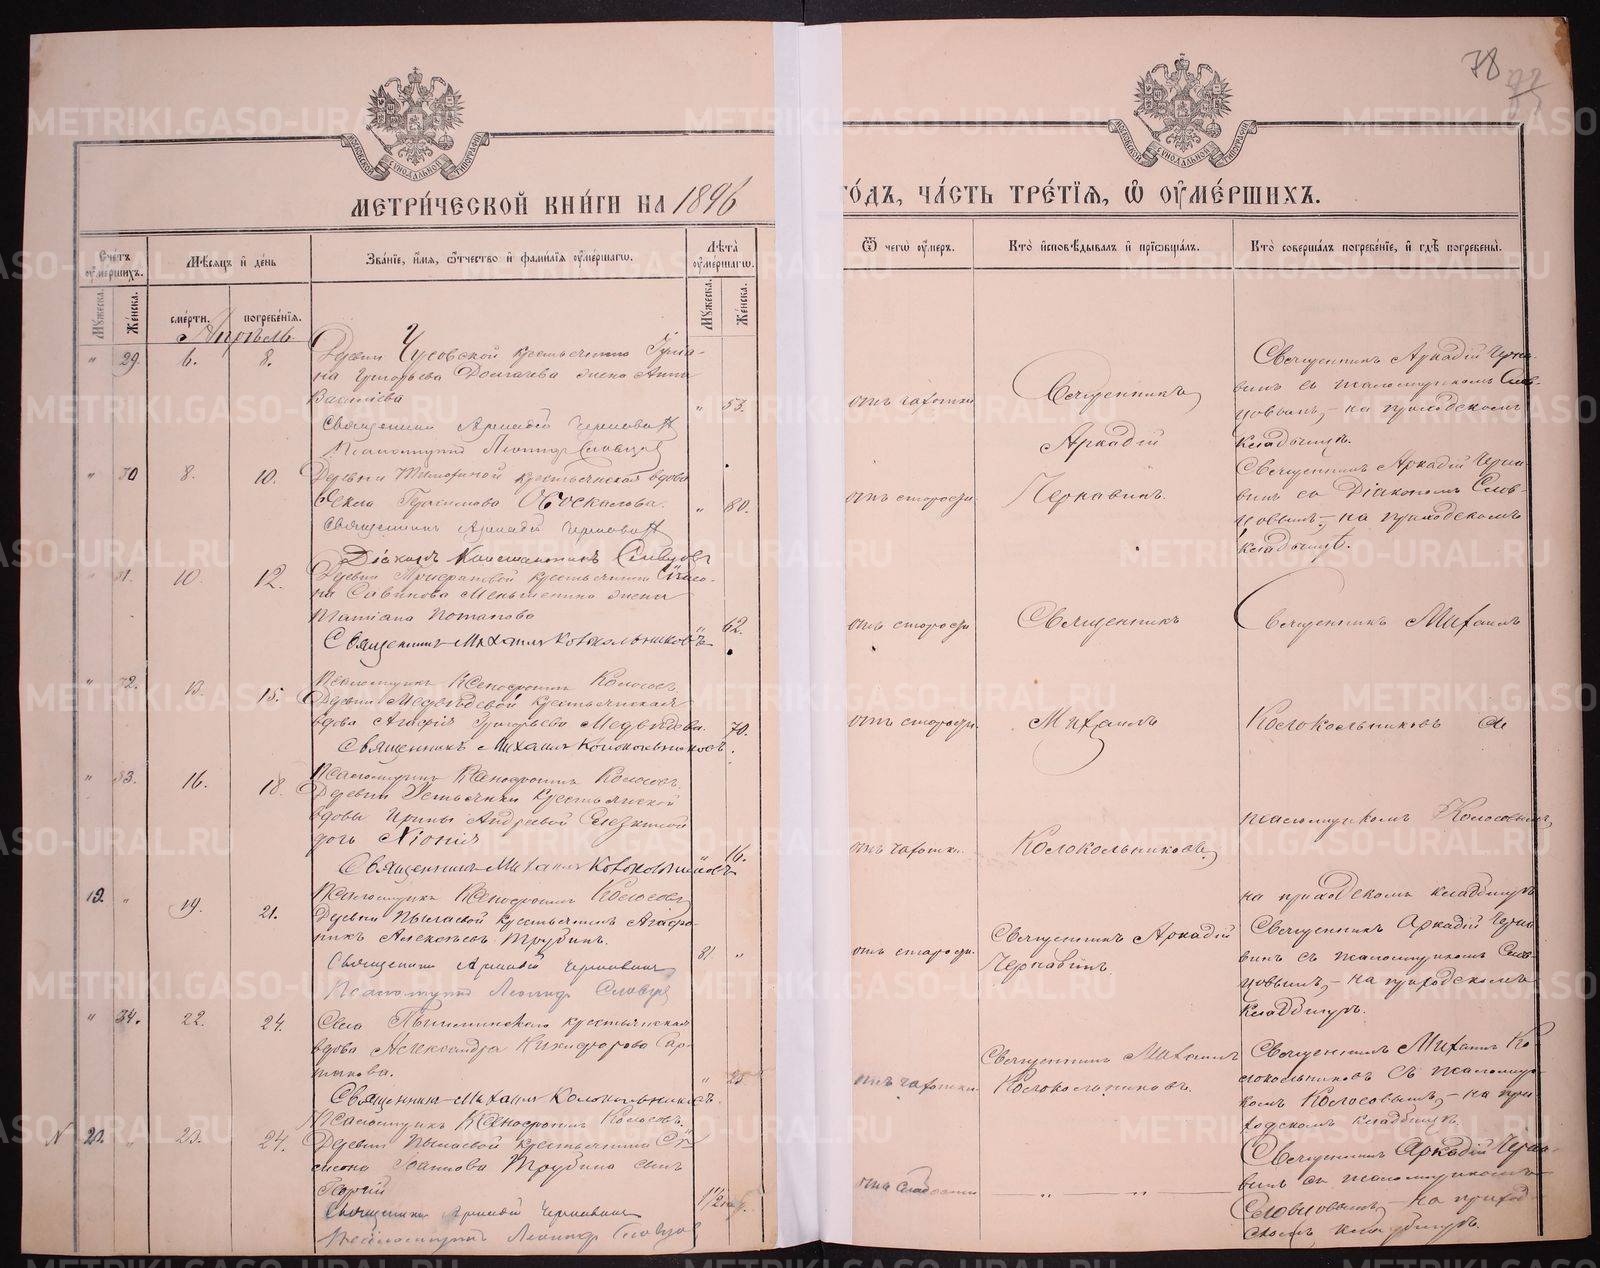 78
72
МЕТРИ́ЧЕСКОЙ КНИ́ГИ НА 1896
ГО́ДЪ, ЧА́СТЬ ТРЕ́ТЇѦ, Ѡ҆ ОУ҆МЕ́РШИХЪ.
Сче́тъ оу҆ме́ршихъ.
Мѣ́сѧцъ и҆ де́нь
Зва́нїе, и҆́мѧ, ѻ҆́тчество и҆ фами́лїѧ оу҆ме́ршагѡ.
Лѣ́та оу҆ме́ршагѡ.
Ѿ чегѡ̀ оу҆́меръ.
Кто̀ и҆сповѣ́дывалъ и҆ прїѡбща́лъ.
Кто̀ соверша́лъ погребе́нїе, и҆ гдѣ̀ погребены̀.
Мꙋ́жеска.
Же́нска.
сме́рти.
погребе́нїѧ.
Мꙋ́жеска.
Же́нска.
Апрѣль
" 29 6. 8. Деревни Чусовской крестьянина
на Григорьева Долгачева жена Анна
Васильева " 53.
Священникъ Аркадій Чернавинъ
Псаломщикъ Леонидъ Словцовъ
отъ чахотки
Священникъ
Аркадій
Чернавинъ.
Священникъ Аркадій Черна-
винъ съ псаломщикомъ Слов-
цовымъ, на приходскомъ
кладбищѣ.
" 30 8. 10. Деревни крестьянская вдова
Ѳекла Герасимова " 80.
Священникъ Аркадій Чернавинъ
Діаконъ Константинъ Словцовъ
отъ старости
Священникъ Аркадій Черна-
винъ со Діакономъ Слов-
цовымъ, на приходскомъ
кладбищѣ.
" 31. 10. 12. Деревни крестьянина
на Савинова Меньшенина жена
Татіана Потапова " 62.
Священникъ Михаилъ Колокольниковъ
Псаломщикъ Ксенофонтъ Колосовъ.
отъ старости
Священникъ
Михаилъ
Колокольниковъ
Священникъ Михаилъ
Колокольниковъ съ
псаломщикомъ Колосовымъ,
на приходскомъ кладбищѣ
" 32. 13. 15. Деревни Медвѣдевой крестьянская
вдова Агафія Григорьева Медвѣдева. 70.
Священникъ Михаилъ Колокольниковъ.
Псаломщикъ Ксенофонтъ Колосовъ.
отъ старости
" 33. 16. 18. Деревни крестьянской
вдовы Ирины Андреевой
дочь Хіонія " 16.
Священникъ Михаилъ Колокольниковъ
Псаломщикъ Ксенофонтъ Колосовъ
отъ чахотки.
19. " 19. 21. Деревни Пылаевой крестьянинъ Агафо-
никъ Алексѣевъ Трубинъ. 81 "
Священникъ Аркадій Чернавинъ
Псаломщикъ Леонидъ Словцовъ
отъ старости.
Священникъ Аркадій
Чернавинъ.
Священникъ Аркадій Черна-
винъ съ псаломщикомъ Слов-
цовымъ, на приходскомъ
кладбищѣ.
" 34. 22. 24. Села Пышминскаго крестьянская
вдова Александра Никифорова
" 25
Священникъ Михаилъ Колокольниковъ.
Псаломщикъ Ксенофонтъ Колосовъ.
отъ чахотки
Священникъ Михаилъ
Колокольниковъ.
Священникъ Михаилъ Ко-
локольниковъ съ псаломщи-
комъ Колосовымъ, на при-
ходскомъ кладбищѣ.
N 20. " 23. 24. Деревни Пылаевой крестьянина
Іоаннова Трубина сынъ
Георгій 1 1/2
Священникъ Аркадій Чернавинъ
Псаломщикъ Леонидъ Словцовъ
отъ слабости
" "
Священникъ Аркадій Черна-
винъ съ псаломщикомъ
Словцовымъ, на приход-
скомъ кладбищѣ.
METRIKI.GASO-URAL.RU